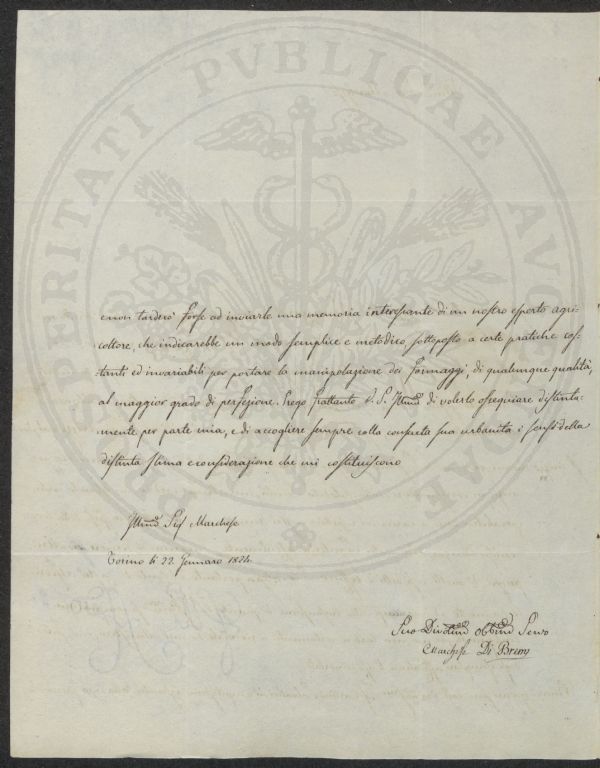 PROSPERITATI PUBLICAE AUGENDAE
e non tarderò forse ad inviarle una memoria interessante di un nostro esperto agri-
coltore, che indicarebbe un modo semplice e metodico sottoposto a certe pratiche cos-
tanti ed invariabili per portare la manipolazione dei formaggi, di qualunque qualità,
al maggior grado di perfezione. Prego frattanto V. S. Illma di volerlo ossequiare distinta-
mente per parte mia, e di accogliere sempre colla consueta sua urbanità i sensi della
distinta stima e considerazione che mi costituiscono
Illmo Sig Marchese
Torino li 22. Gennaro 1824.
Suo Divotmo Obbmo Servo
Marchese Di Breme